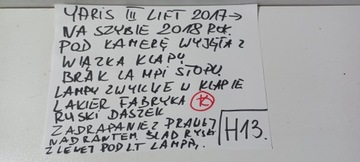 YARIS III LIFT 2017→
NA SZYBIE 2018 ROK.
POD KAMERĘ WYJĘTA Z
WIĄZKA KLAPY
BRAK LAMPI STOPU
LAMPY ZWYKŁE W KLAPIE
LAKIER FABRYKA K
RYSKI DASZEK
ZADRAPANIE Z PRAWEJ
NAD RANTEM ŚLAD RYSY
Z LEWEJ POD LT LAMPĄ,
H13.